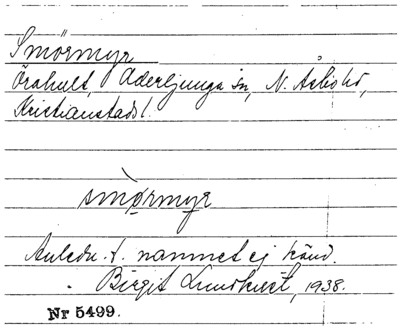 Smörmyr
Örahult, Oderljunga sn, N. Åsbo hd,
Kristianstads l.
smø̀rmyr
Anledn. t. namnet ej känd.
Birgit Lundkvist, 1938.
Nr 5499.